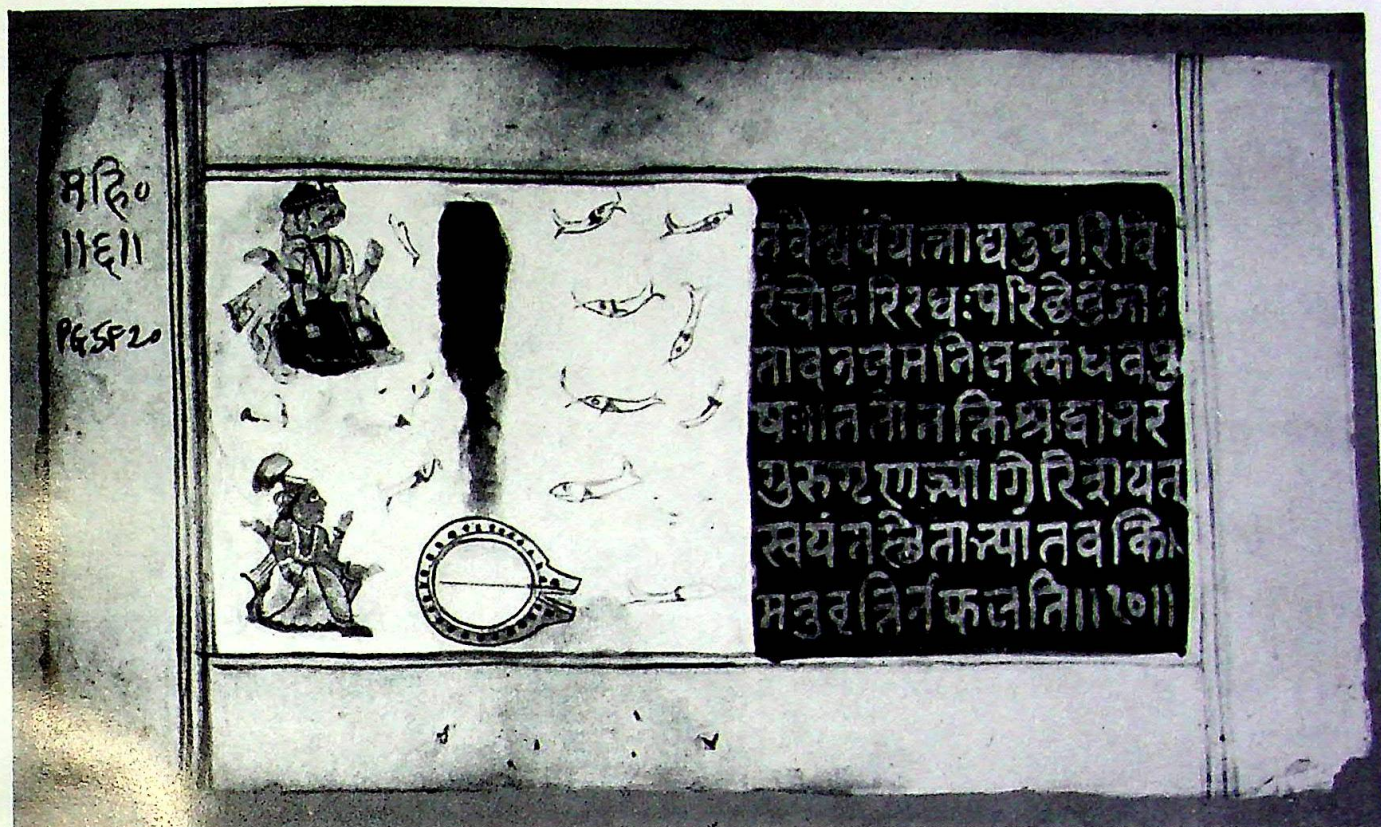 महि०
॥६॥
PG5F20
तवैश्वर्यंयत्नाद्यदुपरिविरिं
चोहरिरधःपरिछेत्तुंजा
तावनलमनिलस्कंधवपु
षःाततोभक्तिश्रद्धाभर
गुरुगृणद्भ्यांगिरिशयत्
स्वयंतस्छेताभ्यांतवकि
मनुवृत्तिर्नफलति॥१०॥